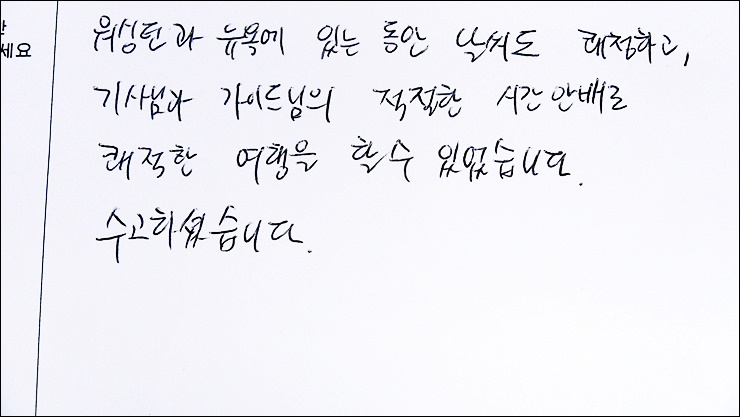 워싱턴과 뉴욕에 있는 동안 날씨도 쾌청하고,
기사님과 가이드님의 적절한 시간안배로
쾌적한 여행을 할 수 있었습니다.
수고하셨습니다.
세요